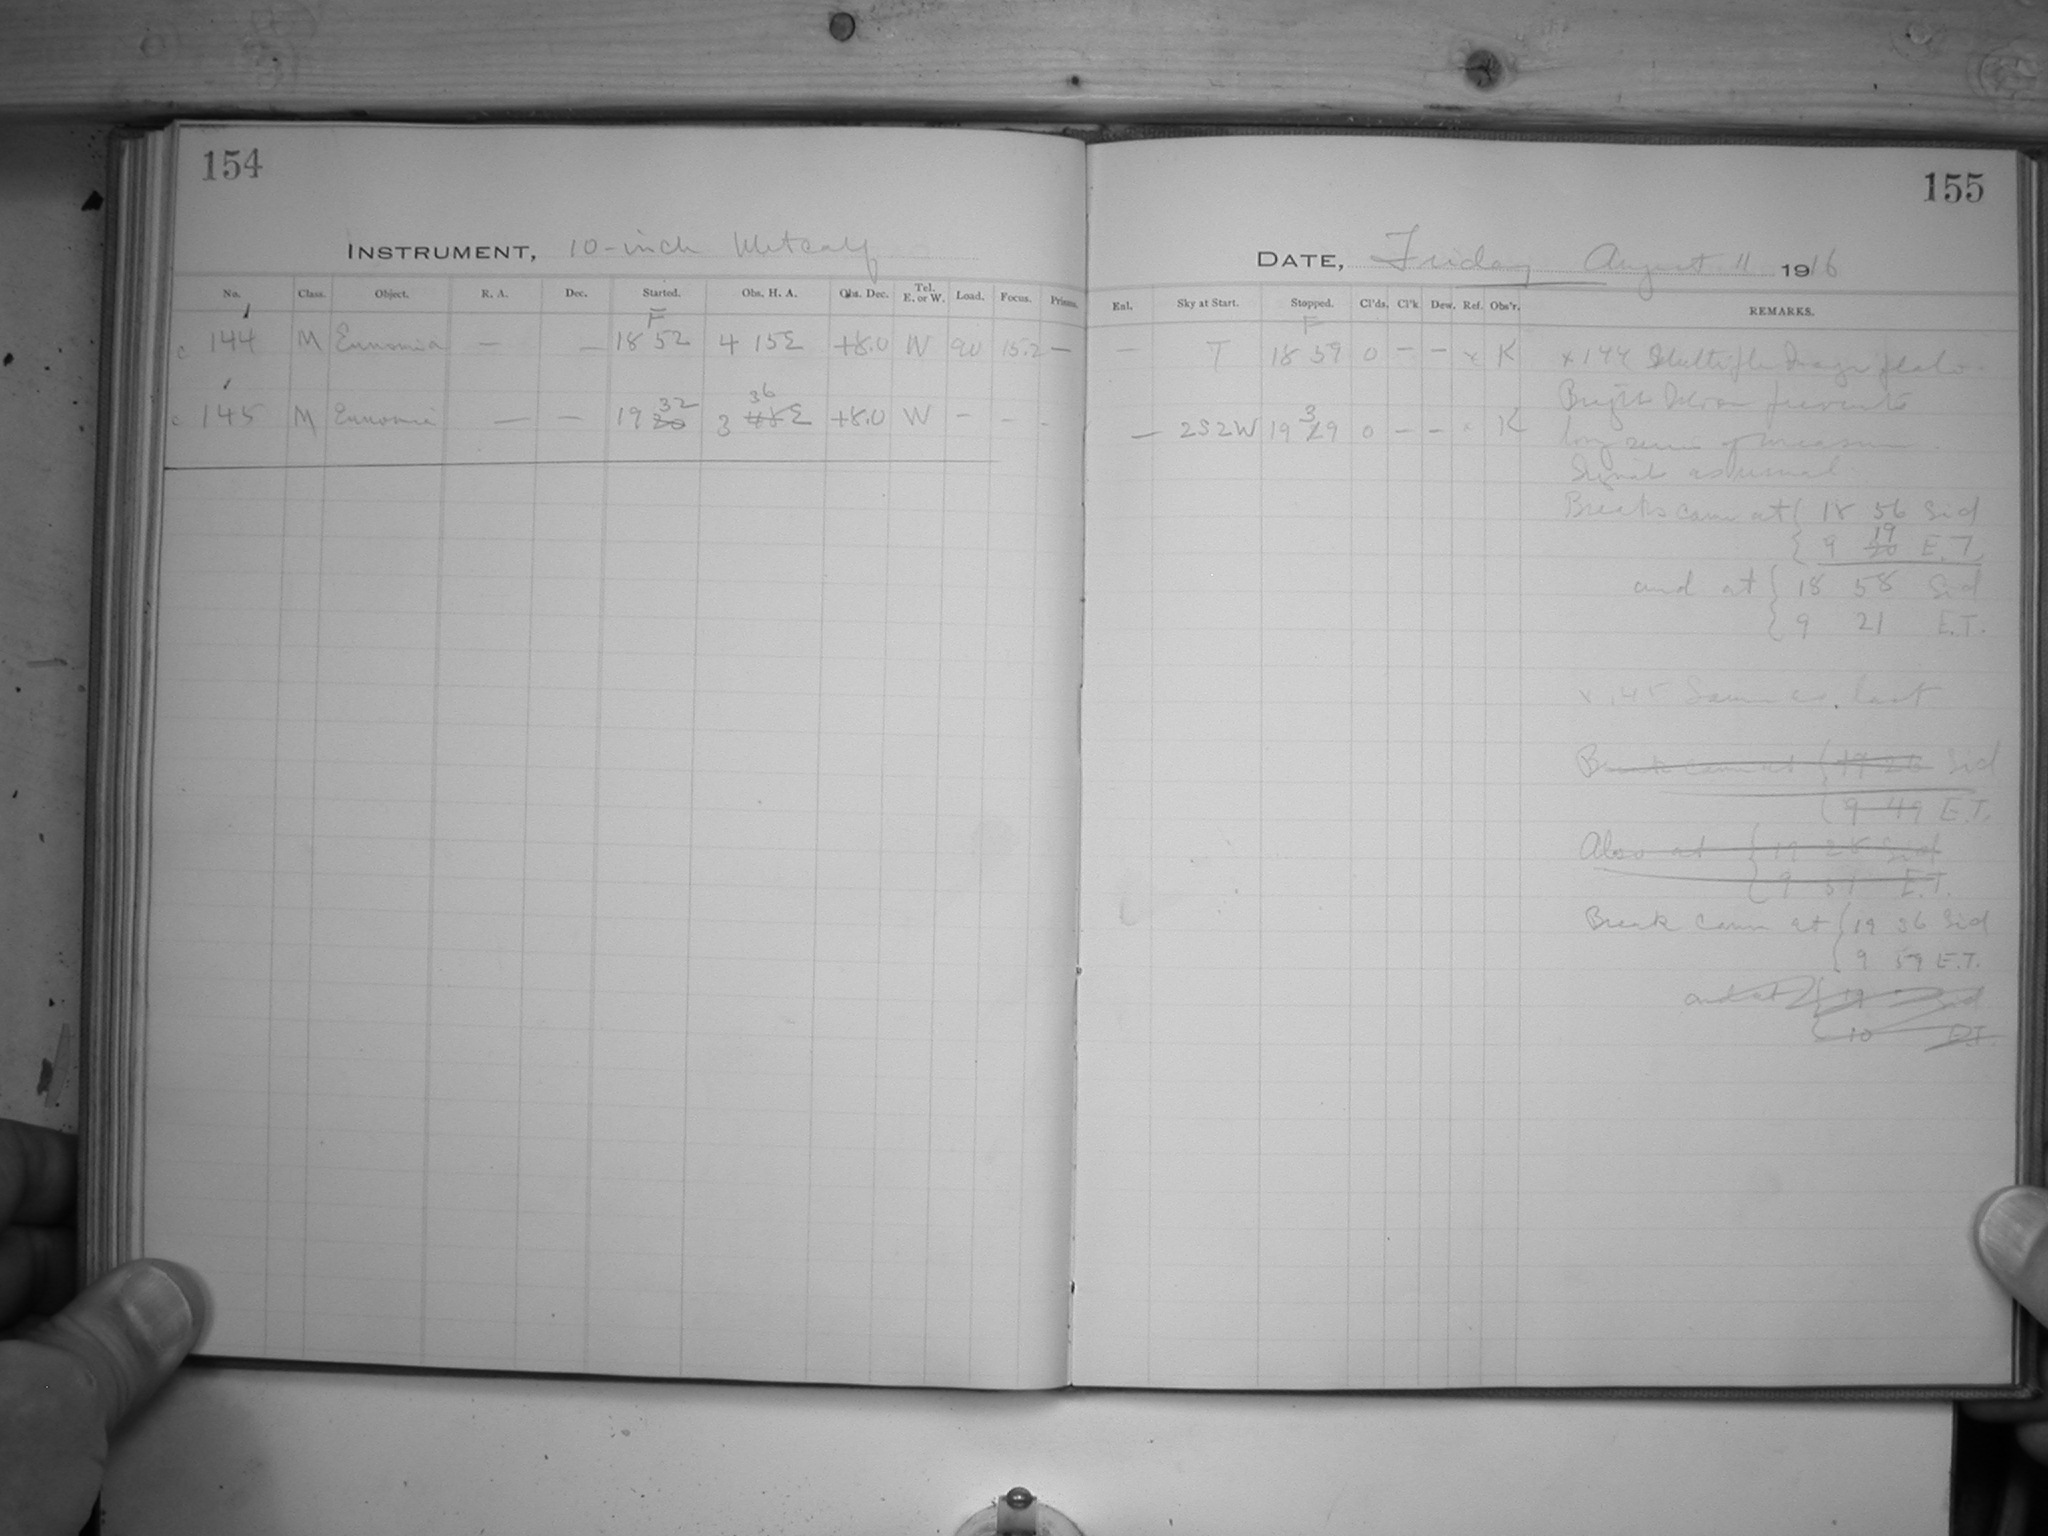 154
INSTRUMENT, 10-inch Metcalf
No. Class. Object. R. A. Dec. Started. Obs. H. A. Obs. Dec. Tel. E. or W. Load. Focus. Prisms.
F
c 144 M Eunomia — — 18 52 4 15E +8.0 W 90 15.2 —
32 36
c 145 M Eunomia — — 19 30 3 48E +8.0 W — - -
155
DATE, Friday August 11 1916
Enl. Sky at Start. Stopped. Cl'ds. Cl'k Dew. Ref. Obs'r. REMARKS.
F
— T 18 59 0 — — x K
— 2S2W 19 39 0 — — x K
x 144 Multiple Image plate.
Bright Moon prevents
long series of measures.
Signals as usual
Breaks came at { 18 56 Sid
19
{ 9 20 E.T.
and at { 18 58 Sid
{ 9 21 E.T.
x 145 Same as last
Break came at { 19 26 Sid
{ 9 49 E.T.
Also at { 19 28 Sid
{ 9 51 E.T.
Break came at { 19 36 Sid
{ 9 59 E.T.
and at { 19 Sid
{ 10 E.T.